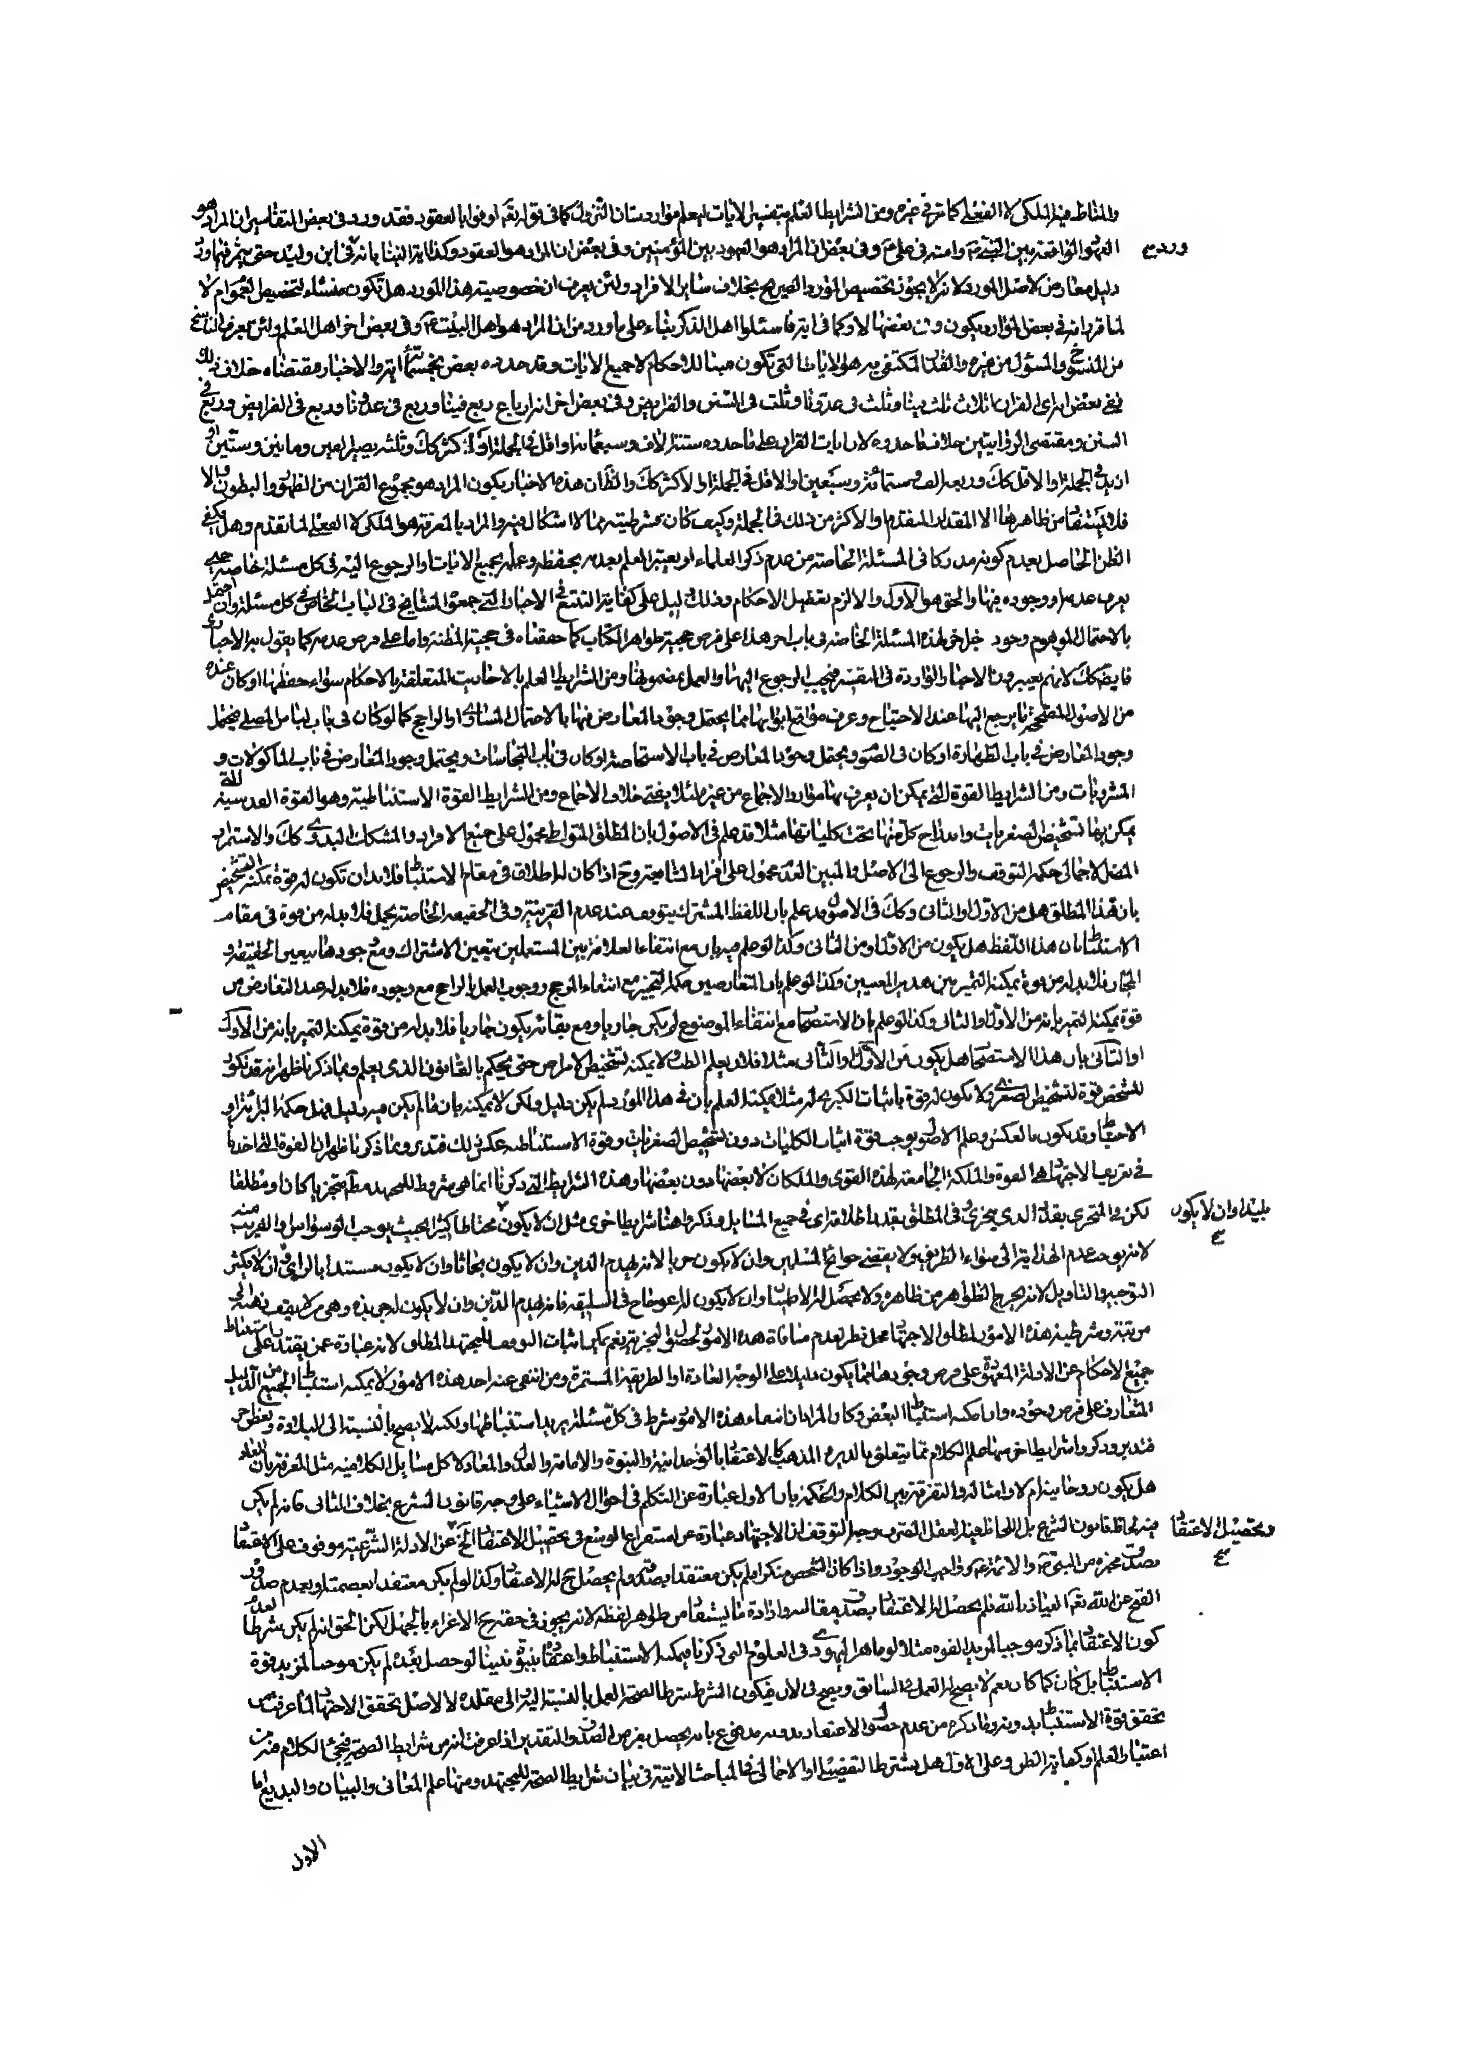 والمناط فيه الملكي لا الفعلي كما مر في غيره ومن الشرايط العلم بتفسير الايات ليعلم موارد شان النزول كما في قوله تعم اوفوا بالعقود فقد ورد في بعض التفاسير ان المراد هو
العهود الواقعة بين النبي ص وامته في علي ع وفي بعض ان المراد هو العهود بين المؤمنين وفي بعض ان المراد هو العقود وكذا اية النبأ بانه في ابن وليد حتى
ورد
دليل معارض لاصل المورد لانه لا يجوز تخصيص المورد الصريح بخلاف ساير الافراد ولئن يعرف ان خصوصية هذا المورد هل تكون منشاء لتخصيص العموم ام لا
لما قد يرد في بعض الموارد يكون وفي بعضها لا وكما في اية فاسئلوا اهل الذكر بناء على ما ورد من ان المراد هو اهل البيت ع وفي بعض اخر اهل العلم ولئن يعرف الناسخ
من المنسوخ والمسؤل من غيره والقدر المكتفي به هو الايات التي تكون مبينا للاحكام لا جميع الايات وقد حدده بعض بخمسمأة اية والاخبار مقتضاه خلاف ذلك
ففي بعض اجزاء القران ثلاث ثلث فينا وثلث في عدونا وثلث في السنن والفرايض وفي بعض اخر انه ارباع ربع فينا وربع في عدونا وربع في الفرايض وربع في
السنن ومقتضى الروايتين خلاف ما حدده لان ايات القران على ما حدده ستة الاف وسبعمائة او اقل في الجملة او اكثر كك وثلثه يصير الفين ومائتين وستين او
ازيد في الجملة او الاقل كك وربعه الف وستمائة وسبعين او الاقل في الجملة او الاكثر كك والظ ان هذه الاخبار يكون المراد هو مجموع القران من الظهور والبطون والا
فلا يستفاد من ظاهرها الا المقدار المتقدم او الاكثر من ذلك في الجملة وكيف كان شرطيته مما لا اشكال فيه والمراد بالمعرفة هو الملكي لا الفعلي لما تقدم وهل يكفي
الظن الحاصل بعدم كونه مدركا في المسئلة الخاصة من عدم ذكر العلماء او يعتبر العلم بعدمه بحفظه وعلمه بجميع الايات او الرجوع اليه في كل مسئلة خاصة حتى
يعرف عدمه او وجوده فيها والحق هو الاول والا لزم تعطيل الاحكام وذلك دليل على كفاية التتبع في الاخبار التي جمعوا المشايخ في الباب الخاص في كل مسئلة وان احتمل
بالاحتمال الموهوم وجود خبر اخر لهذه المسئلة الخاصة في باب اخر هذا على فرض حجية ظواهر الكتاب كما حققناه في حجية المظنة واما على فرض عدمه كما يقول به الاخباري
فايضا كك لانهم يعتبرون الاخبار الواردة في التفسير فيجب الرجوع اليها والعمل بمضمونها ومن الشرايط العلم بالاحاديث المتعلقة بالاحكام سواء حفظها او كان عنده
من الاصول المصححة ما يرجع اليها عند الاحتياج وعرف مواقع ابوابها مما يحتمل وجود المعارض فيها بالاحتمال المساوي او الراجح كما لو كان في باب لباس المصلي فيحتمل
وجود المعارض في باب الطهارة او كان في الصوم ويحتمل وجود المعارض في باب الاستحاضة او كان في باب النجاسات ويحتمل وجود المعارض في باب الماكولات و
المشروبات ومن الشرايط القوة التي يمكن ان يعرف بها موارد الاجماع من غيره لئلا يفتي خلاف الاجماع ومن الشرايط القوة الاستنباطية وهو القوة القدسية التي
يمكن بها تشخيص الصغريات واندراج كل منها تحت كلياتها مثلا قد علم في الاصول بان المطلق المتواطي محمول على جميع الافراد والمشكك البدوي كك والاستمرار
المضر الاجمالي حكمه التوقف والرجوع الى الاصل والمبين العدم محمول على افراد الشايعة وح اذا كان له اطلاق في مقام الاستنباط فلا بد ان تكون له قوة يمكنه التشخيص
بان هذا المطلق هل من الاول او الثاني وكك في الاصول قد علم بان اللفظ المشترك يتوقف عند عدم القرينة وفي الحقيقة الخاصة يحمل فلا بد له من قوة في مقام
الاستنباط بان هذا اللفظ هل يكون من الاول او من الثاني وكذا لو علم فيه بان مع انتفاء العلاقة بين المستعملين يتعين الاشتراك ومع وجودها يتعين الحقيقة و
المجاز فلا بد له من قوة يمكنه التميز بين هذين المعنيين وكذا لو علم بان المتعارضين حكمه التخير مع انتفاء المرجح ووجوب العمل بالراجح مع وجوده فلا بد له عند التعارض من
قوة يمكنه التميز بانه من الاول او الثاني وكذا لو علم بان الاستصحاب مع انتفاء الموضوع لم يكن جاريا ومع بقائه يكون جاريا فلا بد له من قوة يمكنه التميز بانه من الاول
او الثاني بان هذا الاستصحاب هل يكون من الاول او الثاني مثلا فلا بد يعلم الطب لا يمكنه تشخيص الامراض حتى يحكم بالقانون الذي يعلم ومما ذكرنا ظهر انه قد تكون
للشخص قوة تشخيص الصغرى ولا يكون له قوة باثبات الكبرى له مثلا يمكنه العلم بان في هذا المورد لم يكن دليل ولكن لا يمكنه بان ما لم يكن فيه دليل فهل حكمه البرائة او
الاحتياط وقد يكون بالعكس وعلم الاصول يوجب قوة اثبات الكليات دون تشخيص الصغريات وقوة الاستنباط عكس ذلك فتدبر ومما ذكرنا ظهر ان القوة التي اخذنا
في تعريف الاجتهاد هي القوة والملكة الجامعة لهذه القوى والملكات لا بعضها دون بعضها وهذه الشرايط التي ذكرنا انما هي شروط للمجتهد مطلقا متجزيا كان او مطلقا
لكن في المتجزي بقدر الذي يتجزى وفي المطلق بقدر اطلاقه اي في جميع المسايل وذكروا هنا شرايط اخرى مثل ان لا يكون محتاطا كثيرا بحيث يوجب الوسواس والقريب منه
بليدا وان لا يكون
لانه يوجب عدم الهداية الى سواء الطريق ولا يقضي حوائج المسلمين وان لا يكون جربزا لانه يهدم الدين وان لا يكون بحاثا وان لا يكون مستبدا بالراي وان لا يكثر
التوجيه والتاويل لانه يخرج الظواهر من ظاهره ولا يحصل له الاطمينان وان لا يكون له اعوجاج في السليقة فانه يهدم الدين وان لا يكون له حدة ذهن لا يقف ذهنه الى
مرتبة وشرطية هذه الامور لمطلق الاجتهاد محل نظر لعدم منافاة هذه الامور لحصول التجزي نعم يمكن اثبات التوقف للمجتهد المطلق لانه عبارة عمن يقتدر على استنباط
جميع الاحكام عن الادلة المعهودة على فرض وجودها لما يكون دليلا على الوجه العادة او الطريقة المستمرة ومن انتفى عنه احد هذه الامور لا يمكنه استنباط الجميع من الدليل
المتعارف على فرض وجوده وان امكنه استنباط البعض وكان المراد ان انتفاء هذه الامور شرط في كل مسئلة يريد استنباطها ولكنه لا يصح بالنسبة الى البلادة وبعض اخر
فتدبر وذكروا شرايط اخر منها علم الكلام مما يتعلق بالدين والمذهب كالاعتقاد بالوحدانية والنبوة والامامة والعدل والمعاد لا كل مسايل الكلامية مثل المعرفة بان المعاد
هل يكون روحانيا ام لا وامثاله والتفرقة بين الكلام والحكمة بان الاول عبارة عن التكلم في احوال الاشياء على وجه قانون الشرع بخلاف الثاني فانه لم يكن
فيه لحاظ قانون الشرع بل اللحاظ فيه العقل الصرف وجه التوقف ان الاجتهاد عبارة عن استفراغ الوسع في تحصيل الاعتقاد الخ عن الادلة الشرعية موقوف على الاعتقاد
وتحصيل الاعتقاد
بصدق مخبره من النبي ص والائمة ع وواجب الوجود واذا كان الشخص منكرا ولم يكن معتقدا بصدقه ولم يحصل ح له الاعتقاد وكذا لو لم يكن معتقدا بعصمته او بعدم صدور
القبح عن الله تعم العياذ بالله فلم يحصل له الاعتقاد بصدق مقاله وارادة ما يستفاد من ظواهر لفظه لانه يجوز في حقه ح الاغراء بالجهل لكن الحق انه لم يكن شرطا لعدم
كون الاعتقاد بما ذكر موجبا لمزيد القوة مثلا لو ماهرا ليهودي في العلوم التي ذكرنا يمكنه الاستنباط واعتقاد بنبوة نبينا لو حصل بعده لم يكن موجبا لمزيد قوة
الاستنباط بل كان كما كان نعم لا يصح له العمل في السابق ويصح في الان فيكون الشرط شرطا لصحة العمل بالنسبة اليه او الى مقلده لا لاصل تحقق الاجتهاد لما عرفت من
تحقق قوة الاستنباط بدونه وما ذكره من عدم حصول الاعتقاد بدونه مدفوع بانه يحصل بفرض الصدق والتقدير اذا عرفت انه من شرايط الصحة فيجئ الكلام فيه من
اعتبار العلم او كفاية الظن وعلى الاول هل يشترط التفصيلي او الاجمالي في المباحث الاتية في بيان شرايط الصحة للمجتهد ومنها علم المعاني والبيان والبديع اما
الاول